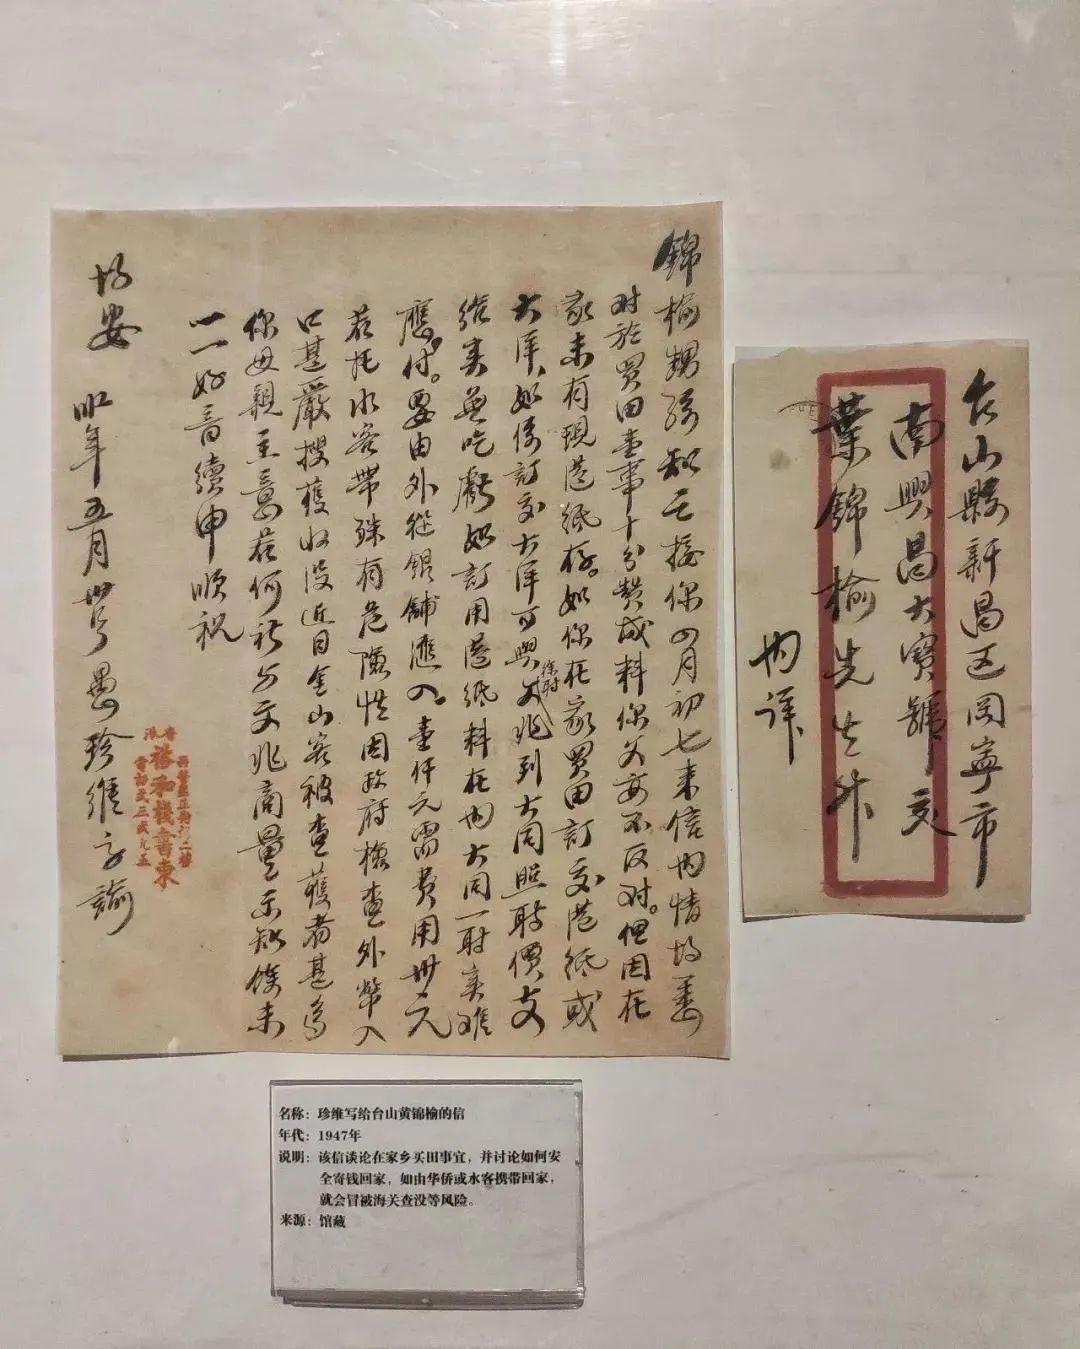 錦榆甥孫知之接你四月初七來信內情均悉
對於買田壹事十分贊成料你父母不反对。但因在
家未有現港紙存。如你在家買田訂交港紙或
大洋、如係訂交大洋可與父兆到大同照時價支
給実無吃虧如訂用港紙料在內大同一時実难
應付。要由外從銀舖滙入。壹仟元需費用卅元
若托水客带殊有危險性因政府檢查外幣入
口甚嚴搜獲收没近日金山客被查獲者甚多
你母親主意若何祈与文兆商量示知餘未
一一好音續申順祝
均安
卅年五月廿号愚珍維字諭
香港
裕和棧書柬
台山縣新昌区同寧市
南興昌大寶號交
葉錦榆先生升
內詳
名称：珍维写给台山黄锦榆的信
年代：1947年
说明：该信谈论在家乡买田事宜，并讨论如何安
全寄钱回家，如由华侨或水客携带回家，
就会冒被海关查没等风险。
来源：馆藏